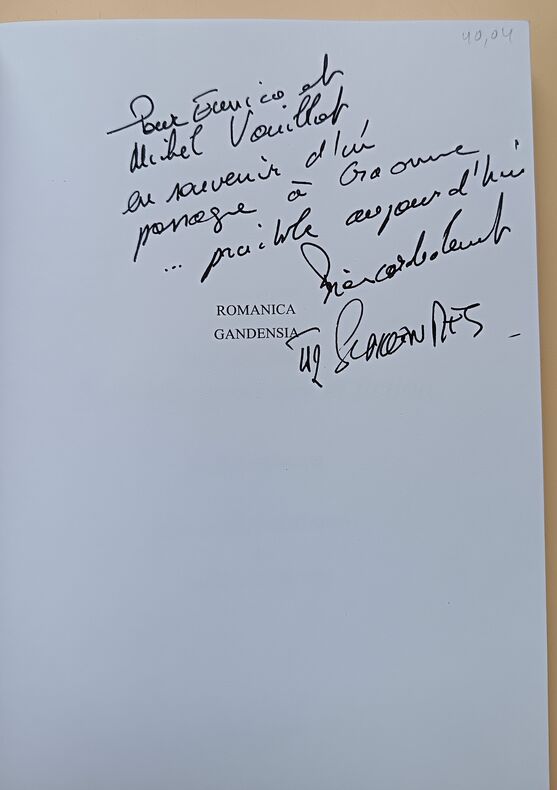 40,04
Pour Eunice et
Michel Vouillot
en souvenir d'un
passage à Craonne
... paisible aujourd'hui
Bien cordialement
ROMANICA
GANDENSIA